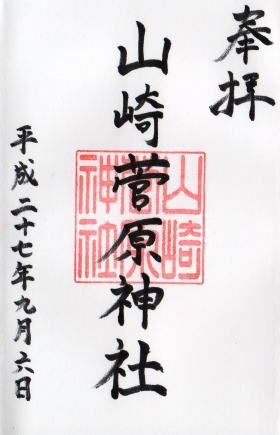 奉拝
山崎菅原神社
山崎
菅原
神社
平成二十七年九月六日